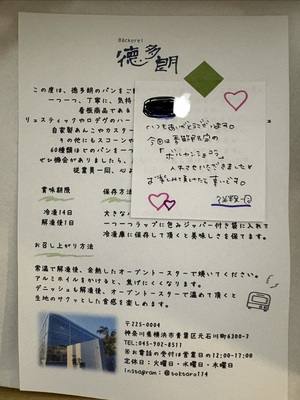 Bäckerei
徳多朗
この度は、徳多朗のパンをご
一つ一つ、丁寧に、気持
看板商品である
リュスティックやロデヴのハー
自家製あんこやカスター
その他にもスコーンや
60種類ほどのパンを一
ぜひ機会がありましたら、
従業員一同、心よ
いつもありがとうございます。
今回は
「ボルカンショコラ」
入れさせていただきました
お楽しみ頂けたら幸いです。
賞味期限
冷凍14日
解凍後1日
保存方法
大きな
一つ一つラップに包みジッパー付き袋に入れて
冷凍庫に保存して頂くと美味しさを保てます。
お召し上がり方法
常温で解凍後、余熱したオーブントースターで焼いてください。
アルミホイルをかけると、焦げにくくなります。
デニッシュも解凍後、オーブントースターで温めて頂くと
生地のサクッとした食感を楽しめます。
〒225-0004
神奈川県横浜市青葉区元石川町6300-7
TEL:045-902-8511
※お電話の受付は営業日の12:00-17:00
定休日：火曜日・水曜日・木曜日
Instagram：@toktaro114